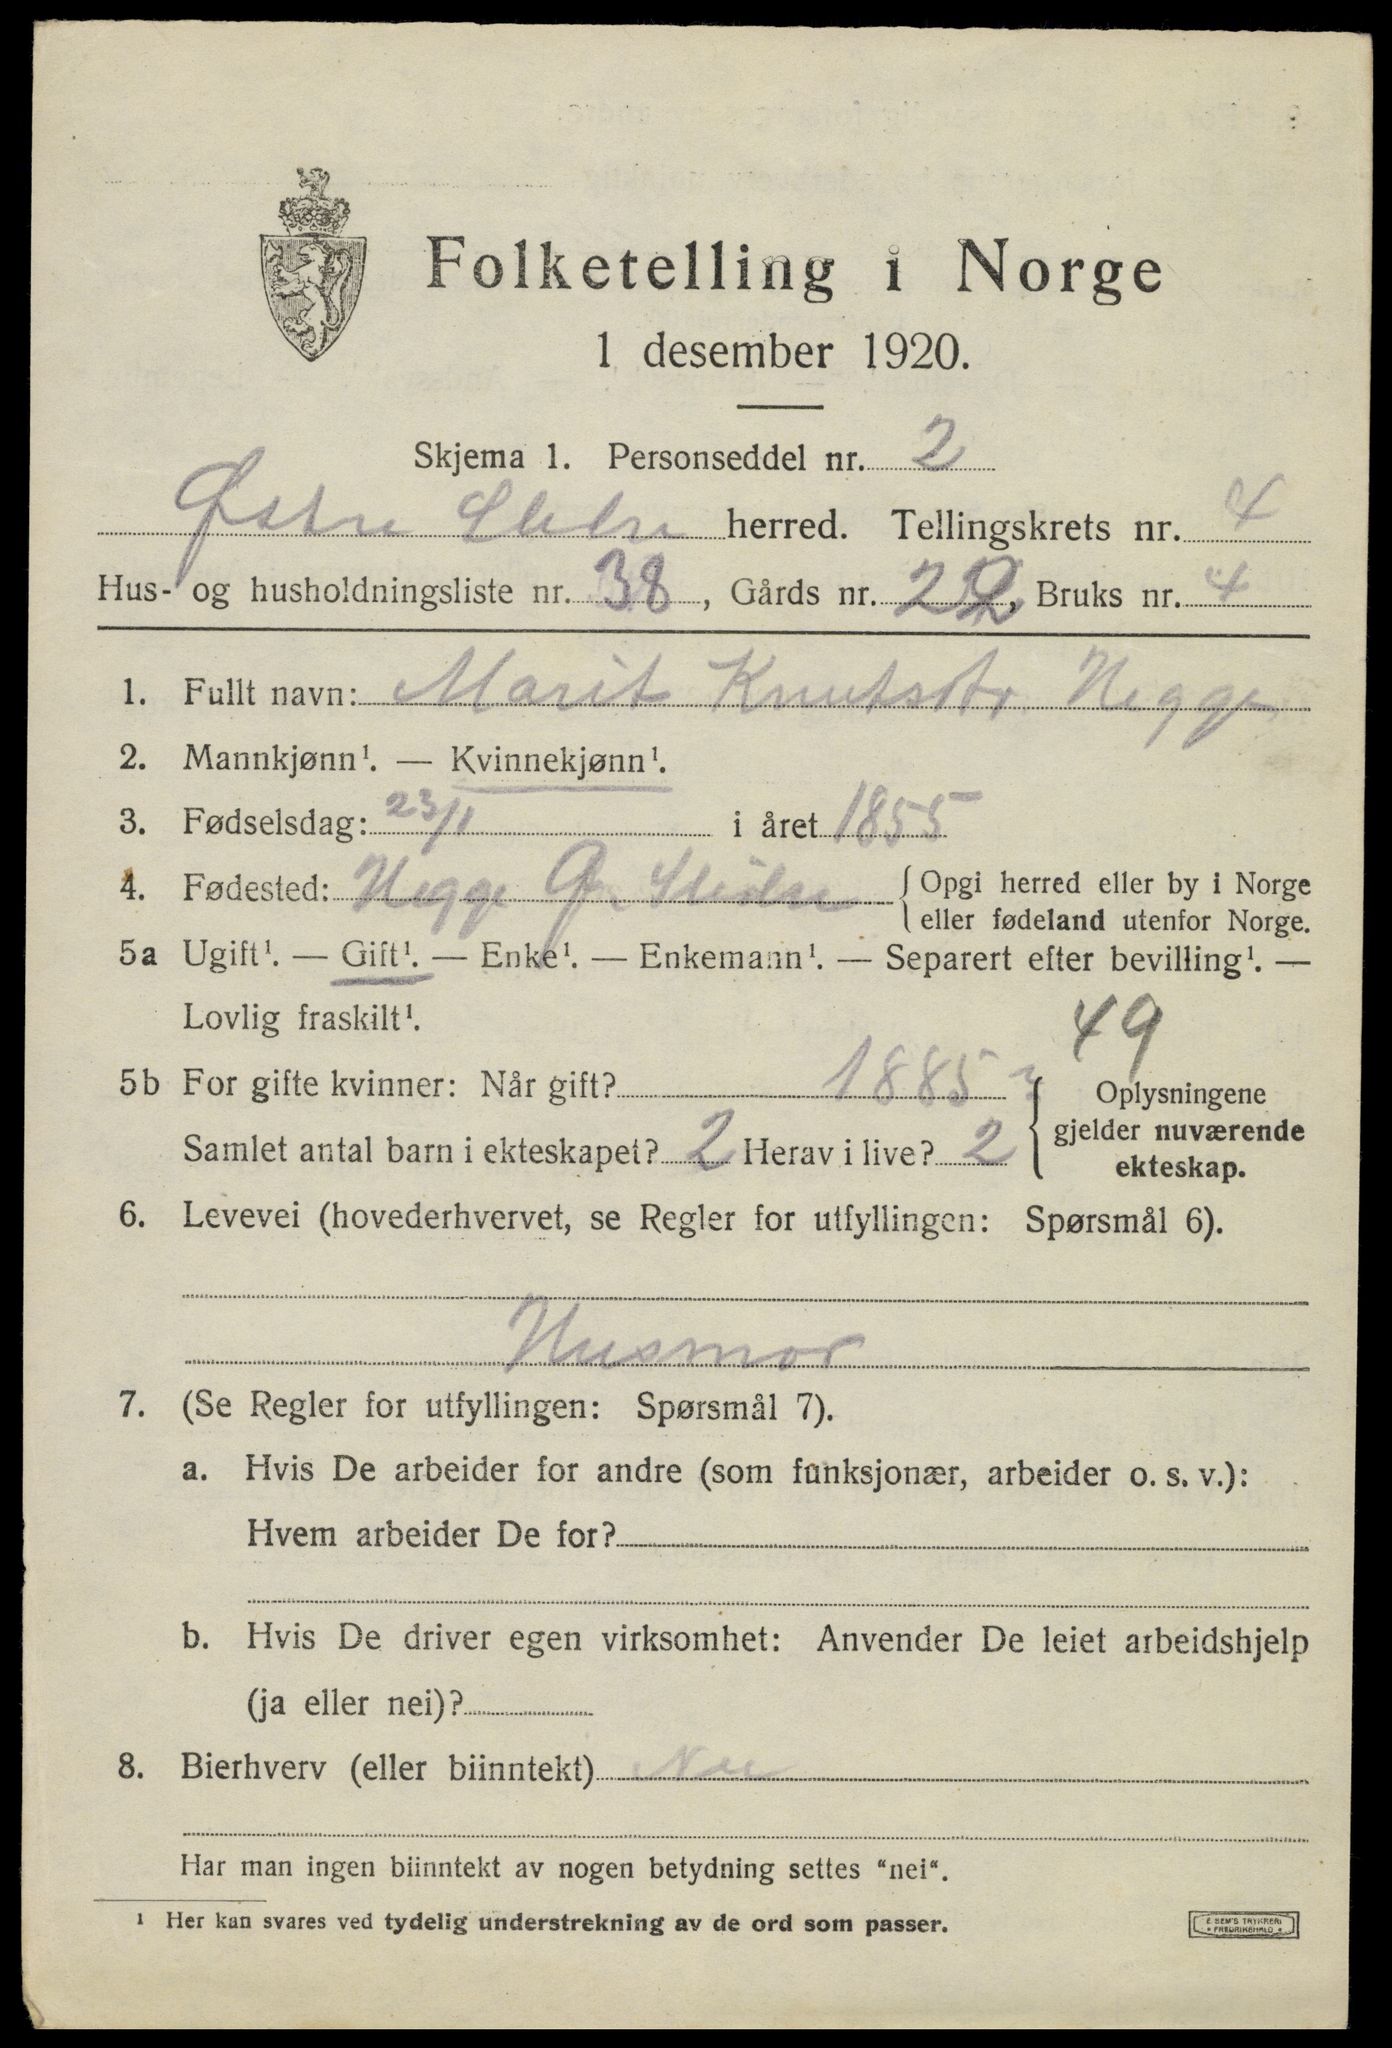 Folketelling i Norge
1 desember 1920.
Skjema 1. Personseddel nr. 2
Østre Slidre herred. Tellingskrets nr. 4
Hus- og husholdningsliste nr. 38, Gårds nr. 22, Bruks nr. 4
1. Fullt navn: Marit Knutsdtr Hegge
2. Mannkjønn¹. — Kvinnekjønn¹.
3. Fødselsdag: 23/1 i året 1855
4. Fødested: Hegge Ø. Slidre {Opgi herred eller by i Norge
eller fødeland utenfor Norge.
5a Ugift¹. — Gift¹. — Enke¹. — Enkemann¹. — Separert efter bevilling¹. —
Lovlig fraskilt¹.
49
5b For gifte kvinner: Når gift? 1885 ? {Oplysningene
Samlet antal barn i ekteskapet? 2 Herav i live? 2 gjelder nuværende
ekteskap.
6. Levevei (hovederhvervet, se Regler for utfyllingen: Spørsmål 6).
Husmor
7. (Se Regler for utfyllingen: Spørsmål 7).
a. Hvis De arbeider for andre (som funksjonær, arbeider o. s. v.):
Hvem arbeider De for?
b. Hvis De driver egen virksomhet: Anvender De leiet arbeidshjelp
(ja eller nei)?
8. Bierhverv (eller biinntekt) Nei
Har man ingen biinntekt av nogen betydning settes “nei“.
1 Her kan svares ved tydelig understrekning av de ord som passer.
E. SEM'S TRYKKERI
* FREDRIKSHALD *